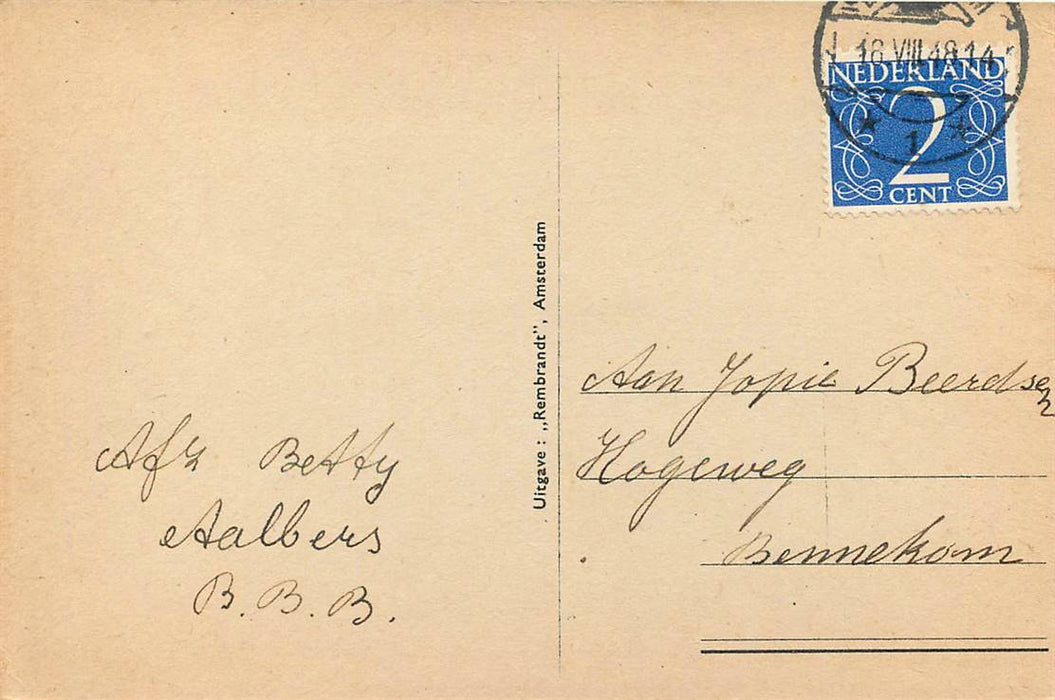 18.VIII.48.14
NEDERLAND
2
CENT
1
Uitgave: „Rembrandt”, Amsterdam
Aan Jopie Beerdsen
Hogeweg
Bennekom
Afz Betty
Aalbers
B. B. B.